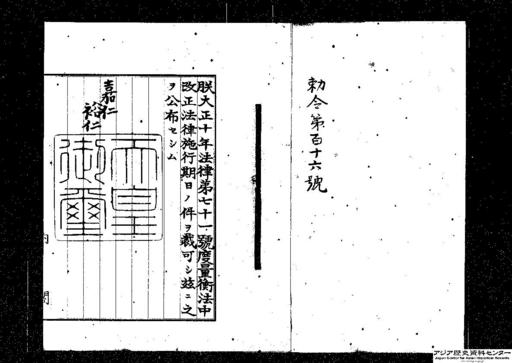 勅令第百十六號
朕大正十年法律第七十一號度量衡法中
改正法律施行期日ノ件ヲ裁可シ玆ニ之
ヲ公布セシム
嘉仁
裕仁
天皇
御璽
内閣
アジア歴史資料センター
Japan Center for Asian Historical Records